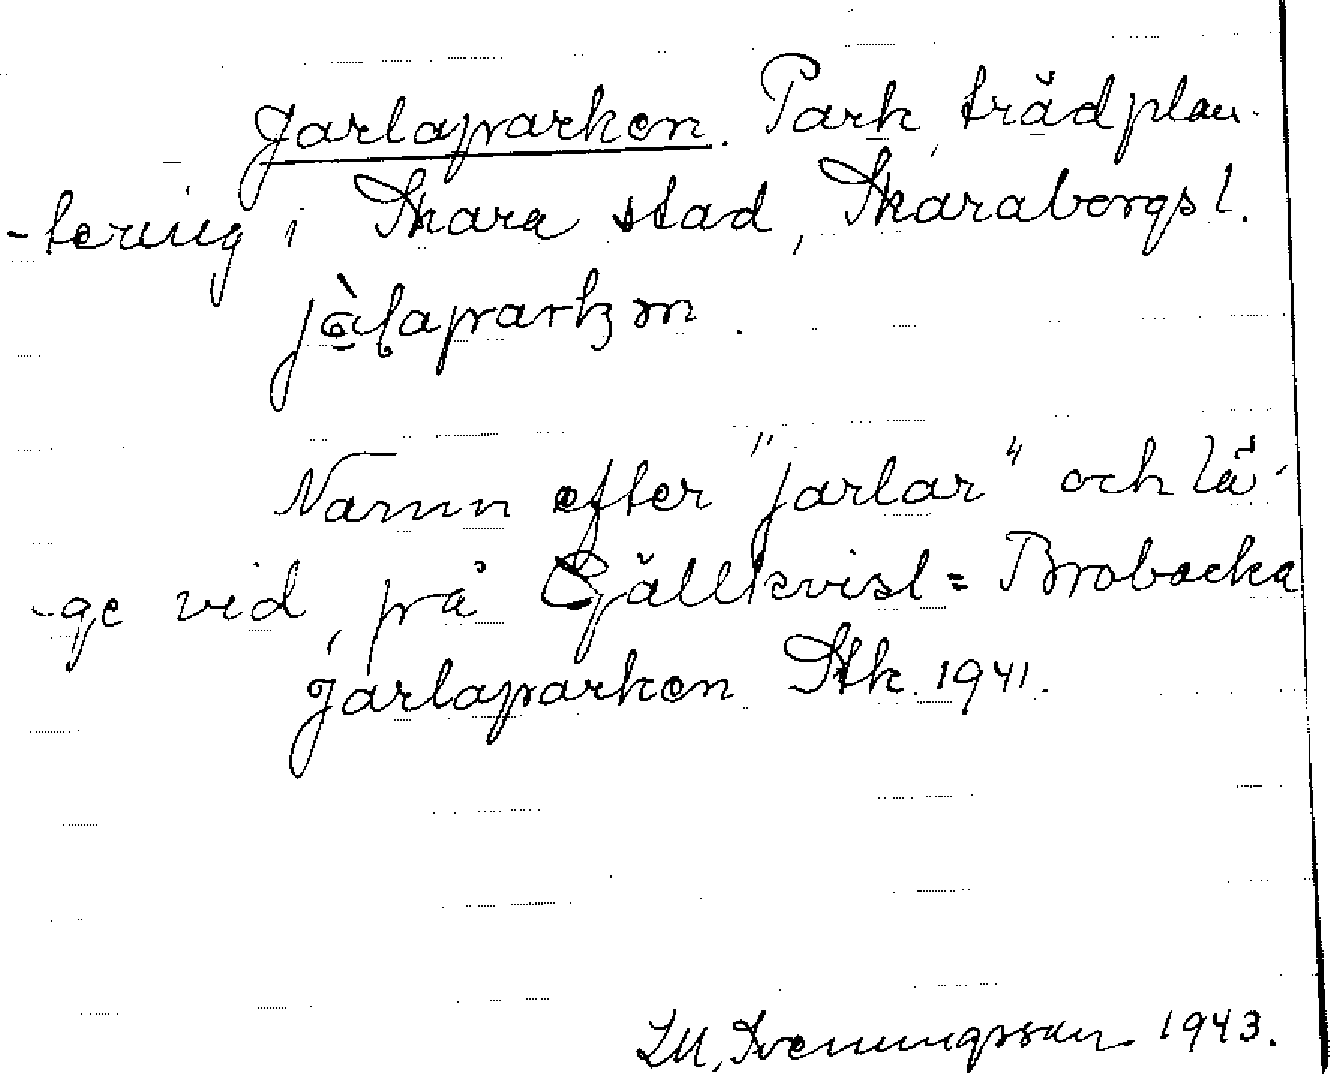 Jarlaparken. Park, trädplan-
-tering i Skara stad, Skaraborgs l.
Namn efter "jarlar" och lä-
-ge vid, på Gällkvist = Brobacka
Jarlaparken Stk. 1941.
I.M. Svenungsson 1943.